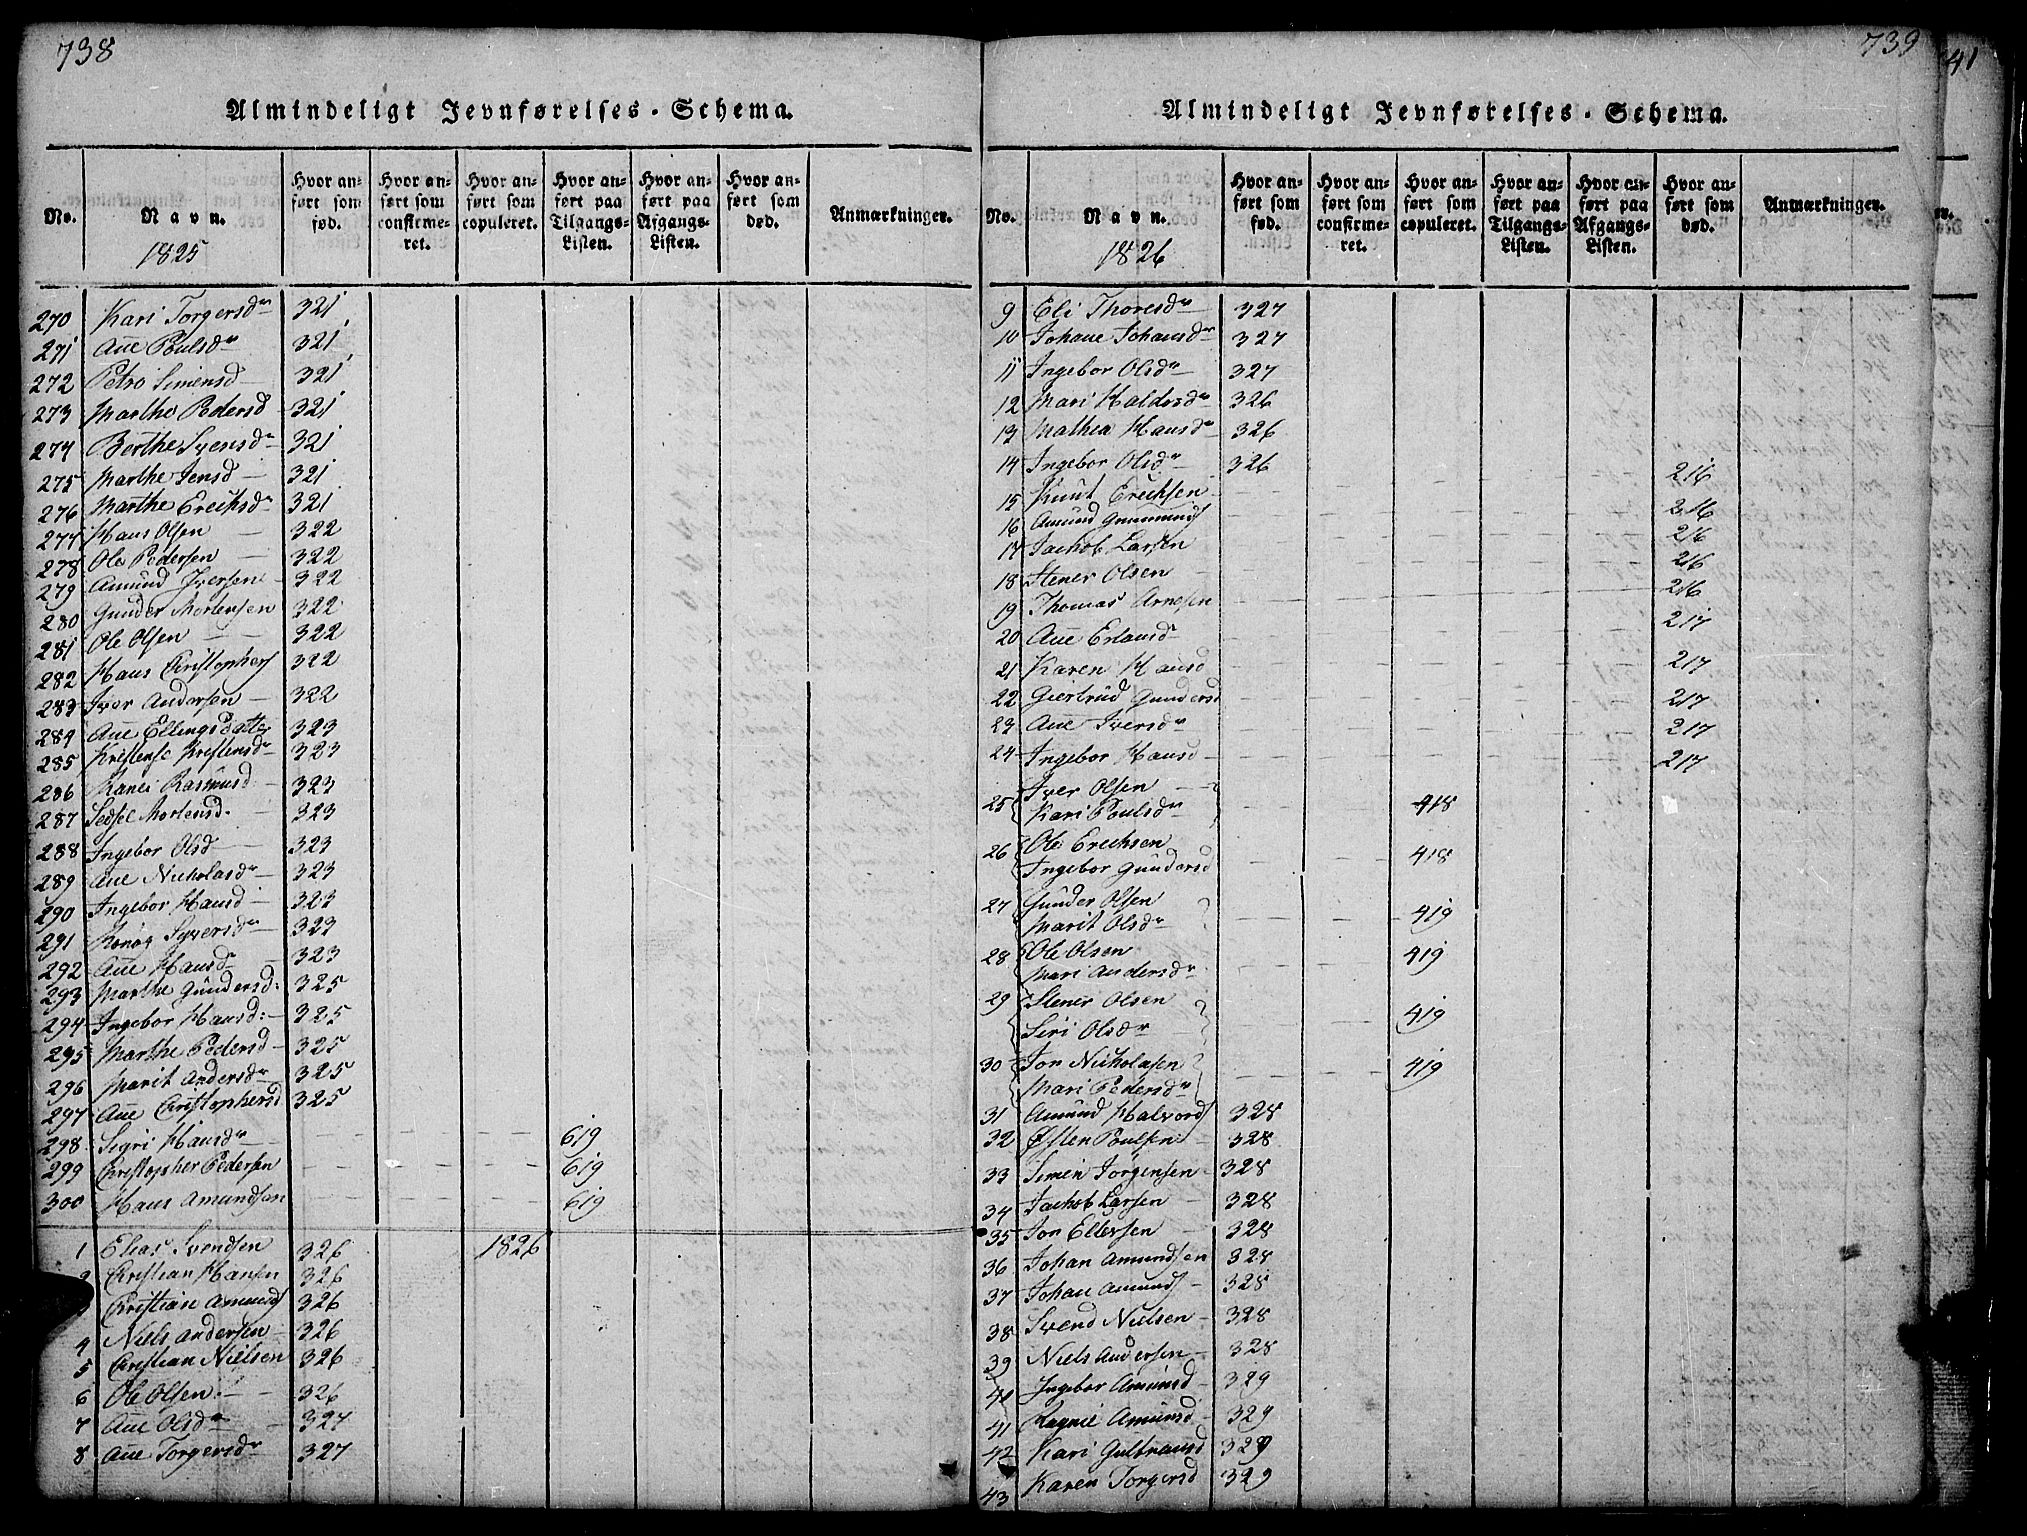 738
Almindeligt Jevnførelses-Schema.
No. Navn. Hvor anført som fød. Hvor anført som confirmeret. Hvor anført som copuleret. Hvor anført paa Tilgangs-Listen. Hvor anført paa Afgangs-Listen. Hvor anført som død. Anmærkninger.
1825
270 Kari Torgersdr 321
271 Ane Poulsdr 321
272 Petro Simensd 321
273 Marthe Pedersd 321
274 Berthe Svensdr 321
275 Marthe Jensd 321
276 Marthe Erichsdr 321
277 Hans Olsen 322
278 Ole Pedersen 322
279 Amund Iversen 322
280 Gunder Mortensen 322
281 Ole Olsen 322
282 Hans Christophers 322
283 Iver Andersen 322
284 Ane Ellingsdatter 323
285 Kristense Kristensdr 323
286 Ranei Rasmusd 323
287 Sedsel Mortensd. 323
288 Ingebor Olsd 323
289 Ane Nicholasdr 323
290 Ingebor Hansd 323
291 Rønøg Syversdr 323
292 Ane Hansdr 323
293 Marthe Gundersd: 325
294 Ingebor Hansd: 325
295 Marthe Pedersd 325
296 Marit Andersdr 325
297 Ane Christophersd 325
298 Sigri Hansdr 619
299 Christopher Pedersen 619
300 Hans Amundsen 619
1826
1 Elias Svendsen 326
2 Christian Hansen 326
Christian Amunds 326
4 Niels Andersen 326
5 Christian Nielsen 326
6 Ole Olsen 326
7 Ane Olsdr 327
8 Ane Torgersdr 327
739
Almindeligt Jevnførelses-Schema.
No. Navn. Hvor anført som fød. Hvor anført som confirmeret. Hvor anført som copuleret. Hvor anført paa Tilgangs-Listen. Hvor anført paa Afgangs-Listen. Hvor anført som død. Anmærkninger.
1826
9 Eli Thoresdr 327
10 Johane Johansdr 327
11 Ingebor Olsdr 327
12 Mari Haldorsdr 326
13 Mathea Hansdr 326
14 Ingebor Olsdr 326
15 Knut Erichsen 216
16 Amund Gunnunds 216
17 Jachob Larsen 216
18 Stener Olsen 216
19 Thomas Arnesen 216
20 Ane Erlandsdr 217
21 Karen Hansd 217
22 Giertrud Gundersd 217
23 Ane Iversdr 217
24 Ingebor Hansd 217
25 Iver Olsen
Kari Poulsdr 418
26 Ole Erichsen
Ingebor Gundersd 418
27 Gunder Olsen
Marit Olsdr 419
28 Ole Olsen
Mari Andersdr 419
29 Stener Olsen
Siri Olsdr 419
30 Jon Nicholasen
Mari Pedersdr 419
31 Amund Halvords 328
32 Østen Poulsen 328
33 Simen Jørgensen 328
34 Jachob Larsen 328
35 Jon Ellefsen 328
36 Johan Amundsen 328
37 Johan Amunds 328
38 Svend Nielsen 328
39 Niels Andersen 328
40 Ingebor Amunsd 329
41 Ragnil Amunsd 329
42 Kari Gulbransd 329
43 Karen Torgersd 329
41